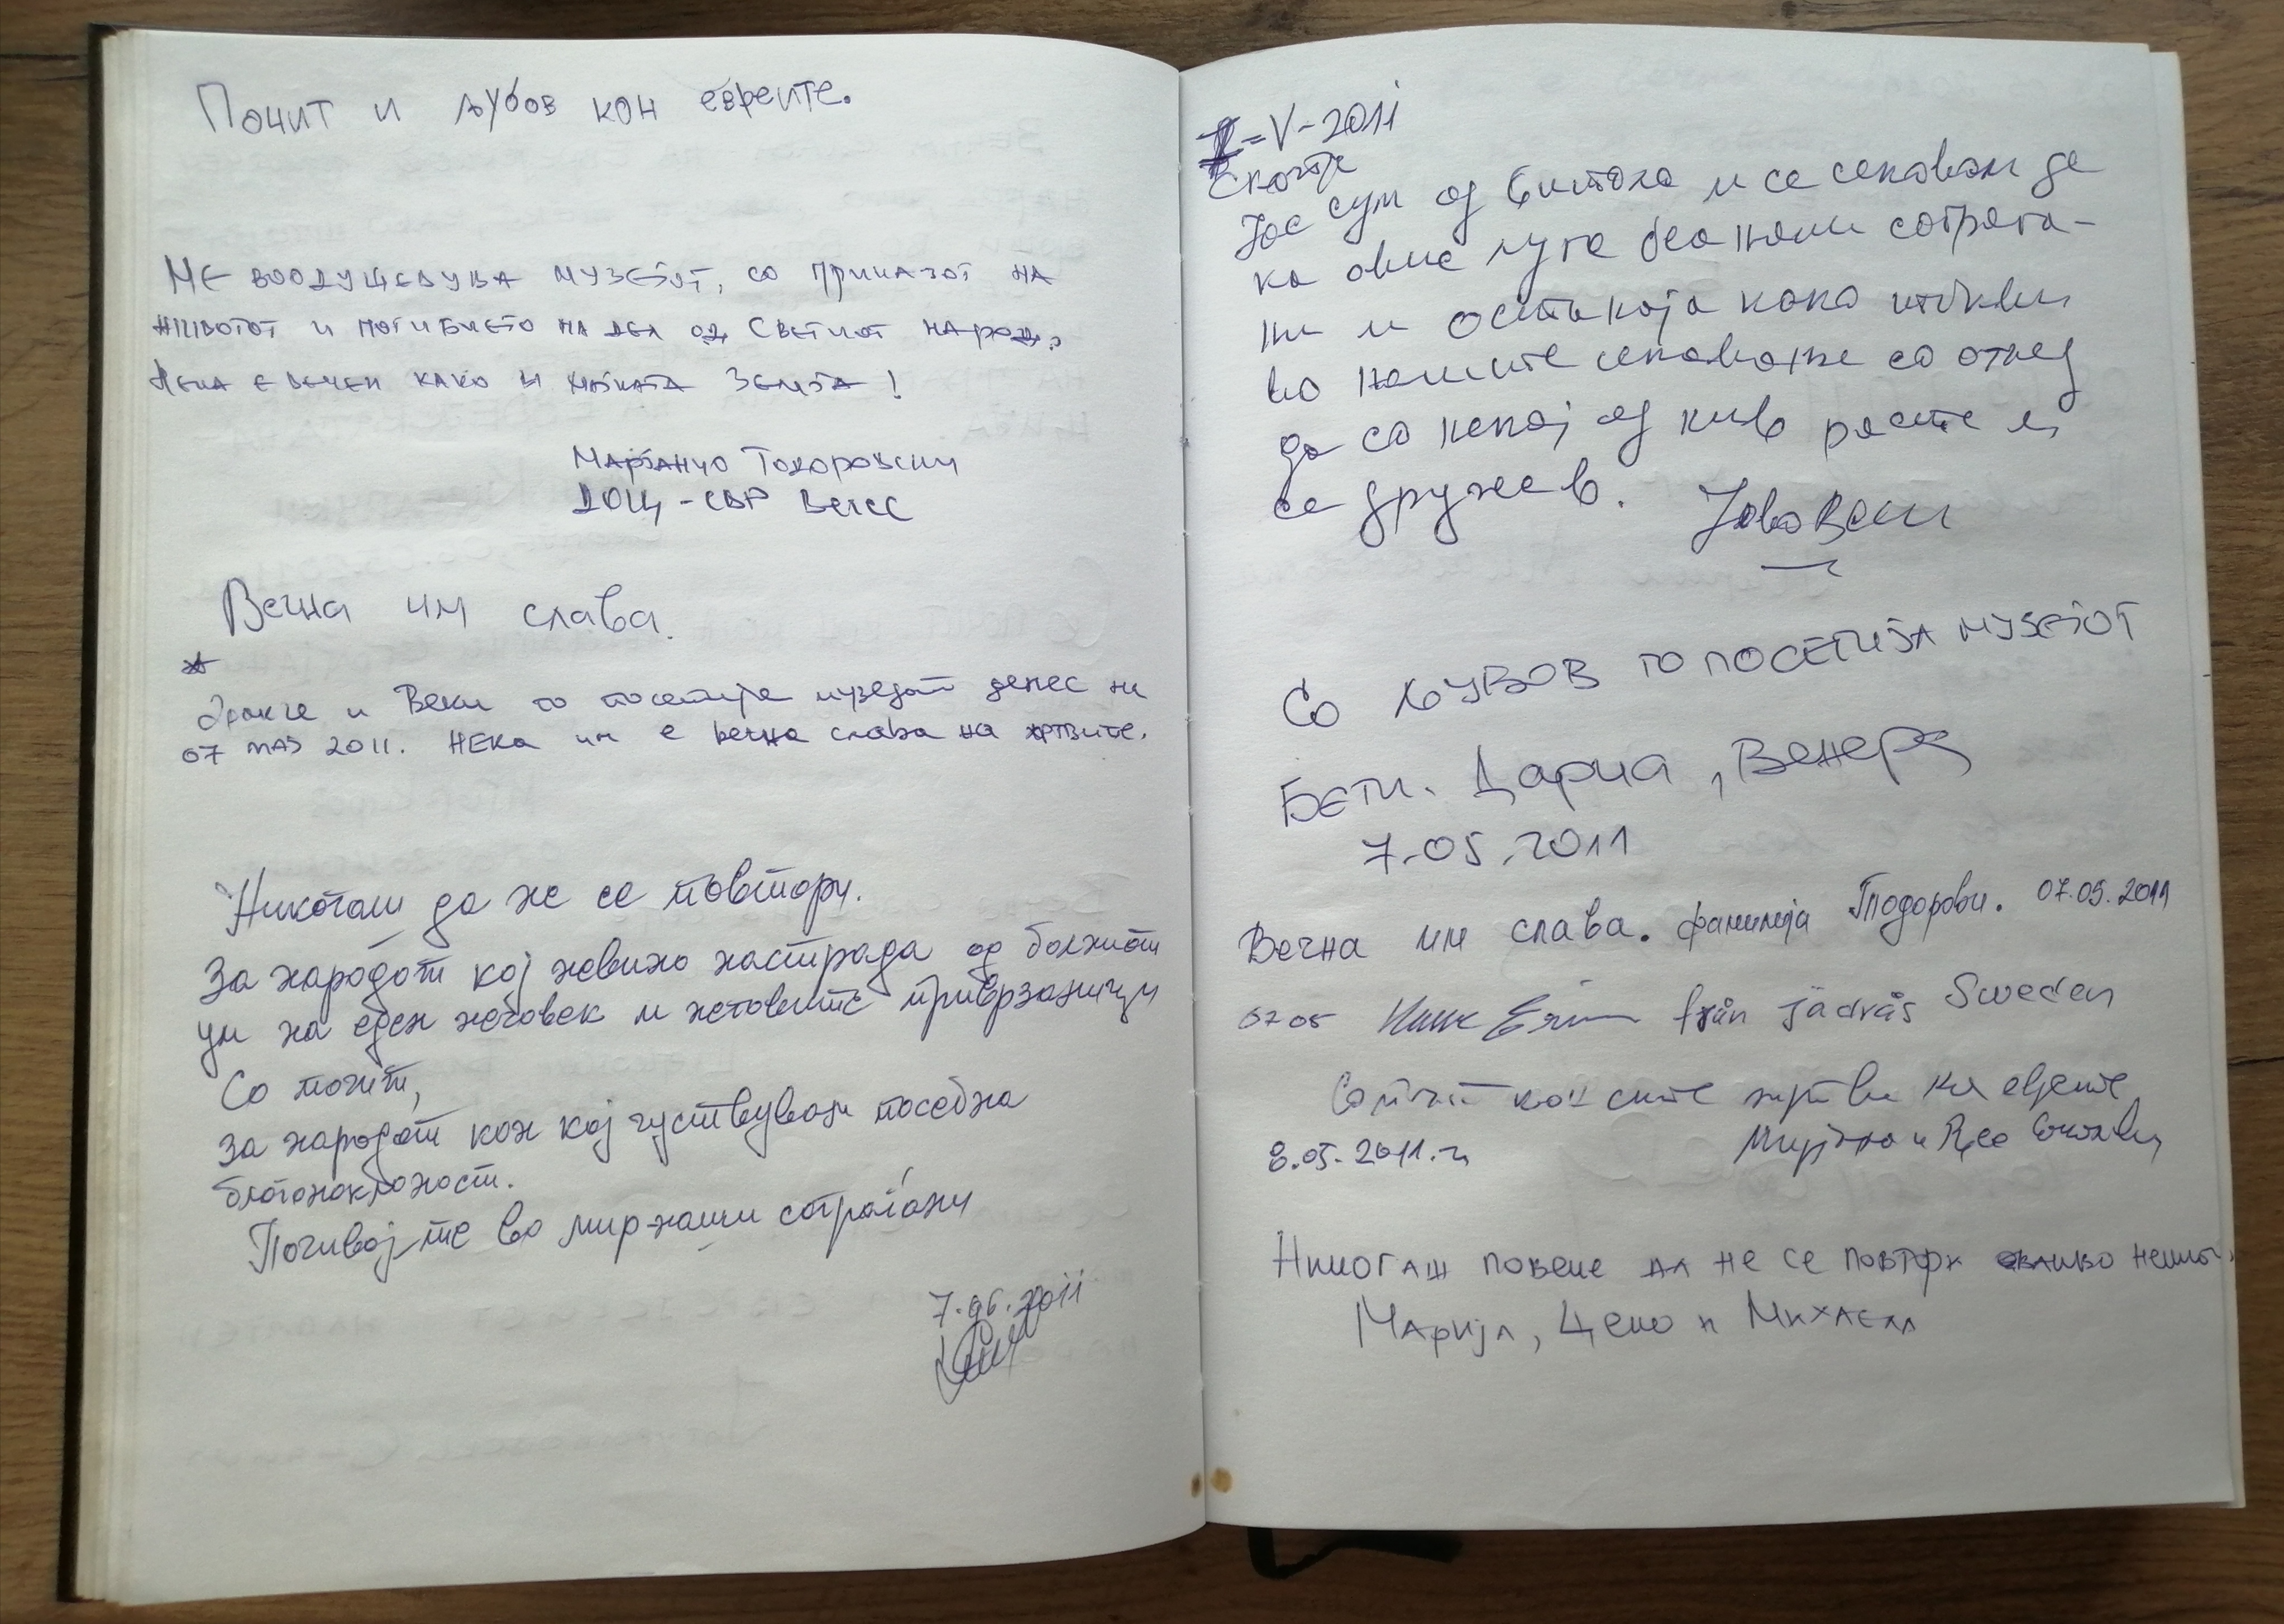 Почит и љубов кон евреите.
МЕ ВООДУШЕВУВА МУЗЕЈОТ, СО ПРИКАЗОТ НА
ЖИВОТОТ И ПОГИБИЕТО НА ДЕЛ ОД СВЕТИОТ НАРОД.
НЕКА Е ВЕЧЕН КАКО И МАЈКАТА ЗЕМЈА!
МАРЈАНЧО ТОДОРОВСКИ
ДОЦ - СВР ВЕЛЕС
Вечна им слава.
и Веки го посетија музејот денес на
07 МАЈ 2011. НЕКА им е вечна слава на жртвите.
Никогаш да не се повтори.
За народот кој невино настрада од болниот
ум на еден нечовек и неговите приврзаници
Со почит,
за народот кон кој чуствувам посебна
благонаклоност.
Почивајте во мир наши сограѓани
7.06.2011
V-2011
Скопје
Јас сум од Битола и се сеќавам де
ка овие луѓе беа наши сограѓа-
ни и останаја како
во нашите сеќавање со
да со некој од нив расте и
се друже в.
СО ЉУБОВ ГО ПОСЕТИЈА МУЗЕЈОТ
БЕТИ. Дарија, Венера
7.05.2011
Вечна им слава. фамилија Тодорови. 07.05.2011
07 05 från Jädraås Sweden
Со почит кон сите жртви на евреите
8.05.2011.г. Мирјана и
Никогаш повеќе да не се повтори вакво нешто.
Марија, Цено и Михаела